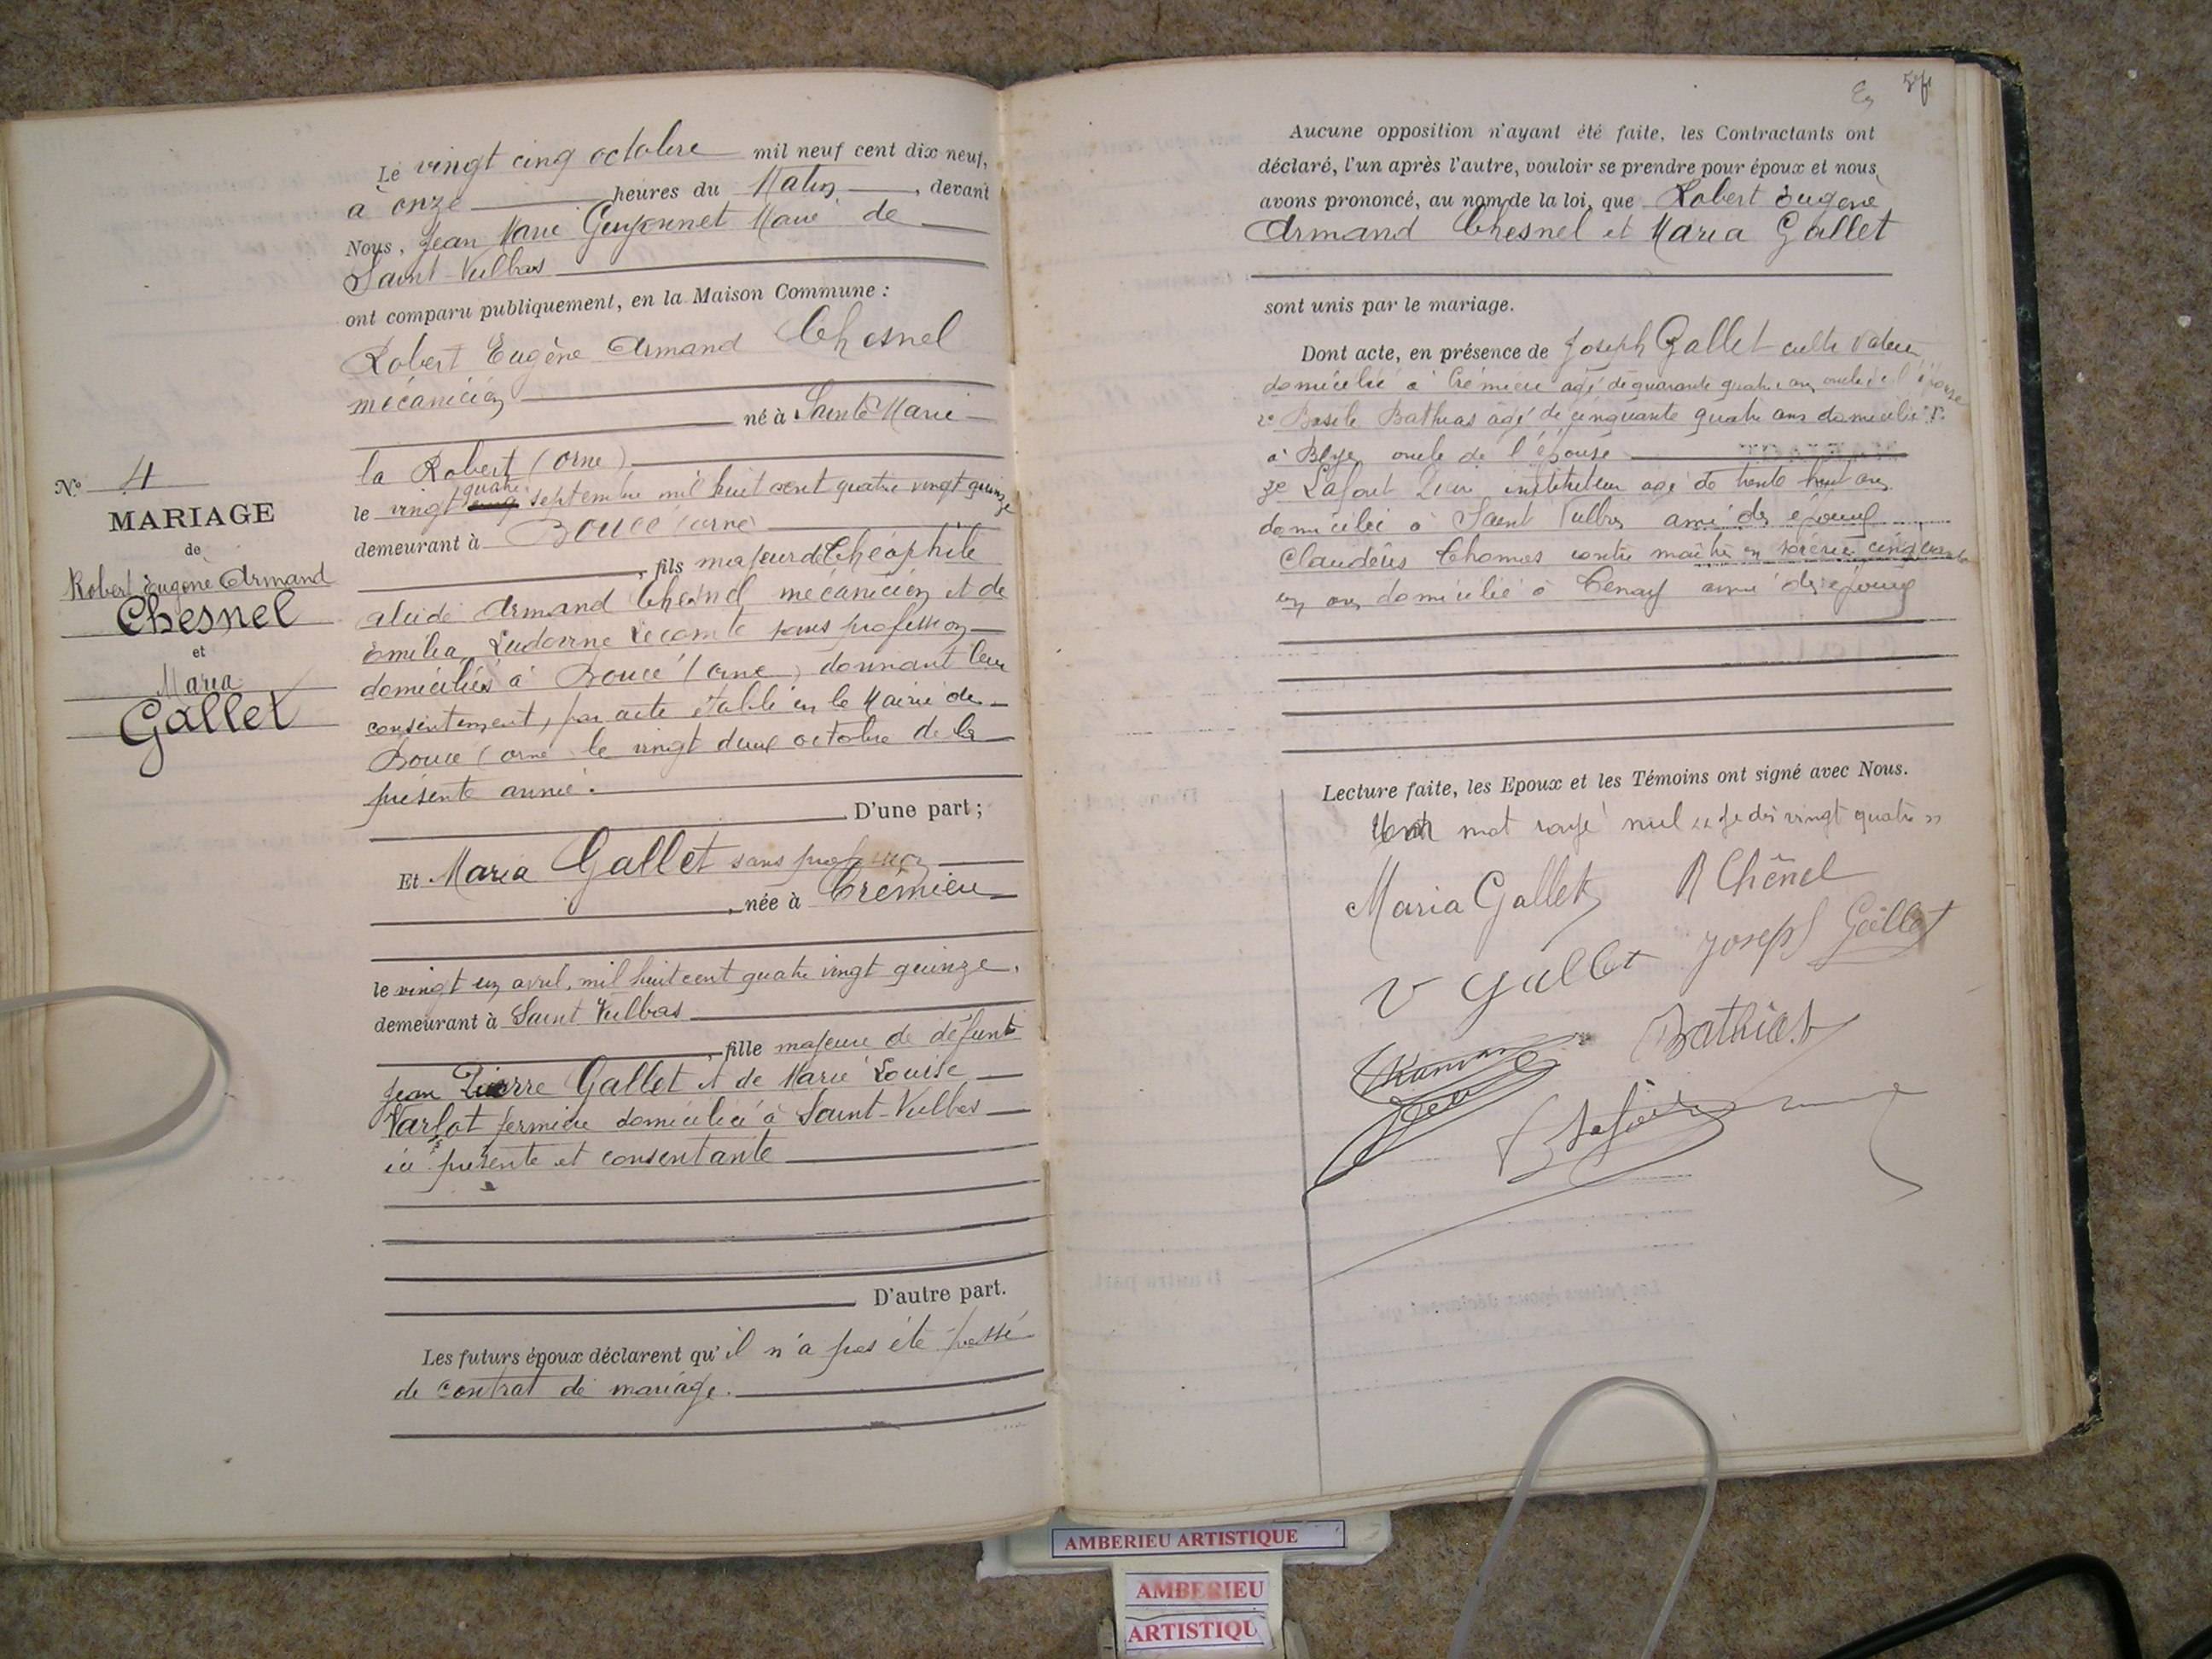 Le vingt cinq octobre mil neuf cent dix neuf,
à onze heures du Matin, devant
Nous, Jean Marie Guyonnet Maire de
Saint-Vulbas
ont comparu publiquement, en la Maison Commune :
Robert Eugène Armand Chesnel
mécanicien
né à Sainte Marie
la Robert (orne)
quatre
le vingt cinq septembre mil huit cent quatre vingt quinze
demeurant à Boucé (orne)
, fils majeur de Théophile
alcide Armand Chesnel mécanicien et de
Emilia Ludovine Lecomte sans profession
domiciliés à Boucé (orne) donnant leur
consentement, par acte établi en la Mairie de
Boucé (orne le vingt deux octobre de la
présente année.
D'une part ;
N° 4
MARIAGE
de
Robert Eugène Armand
Chesnel
et
Maria
Gallet
Et Maria Gallet sans profession
, née à Crémieu
le vingt un avril, mil huit cent quatre vingt quinze,
demeurant à Saint Vulbas
, fille majeure de défunt
Jean Pierre Gallet et de Marie Louise
Varlot fermière domiciliée à Saint-Vulbas
ici présente et consentante
D'autre part.
Les futurs époux déclarent qu'il n'a pas été passé
de contrat de mariage.
Aucune opposition n'ayant été faite, les Contractants ont
déclaré, l'un après l'autre, vouloir se prendre pour époux et nous
avons prononcé, au nom de la loi, que Robert Eugène
Armand Chesnel et Maria Gallet
sont unis par le mariage.
Dont acte, en présence de Joseph Gallet cultivateur
domicilié à Crémieu âgé de quarante quatre ans oncle de l'épouse
2e Basile Bathias âgé de cinquante quatre ans domicilié
à Blye oncle de l'épouse
3e Lafont instituteur agé de trente huit ans
domicilié à Saint Vulbas ami des époux
Claudius Thomas contre maître en soierie cinquante
un ans domicilié à Tenay ami des époux
Lecture faite, les Epoux et les Témoins ont signé avec Nous.
mot rayé nul vingt quatre
Maria Gallet R Chênel
V Gallet Joseph Gallet
Bathias
AMBERIEU ARTISTIQUE
AMBERIEU
ARTISTIQU